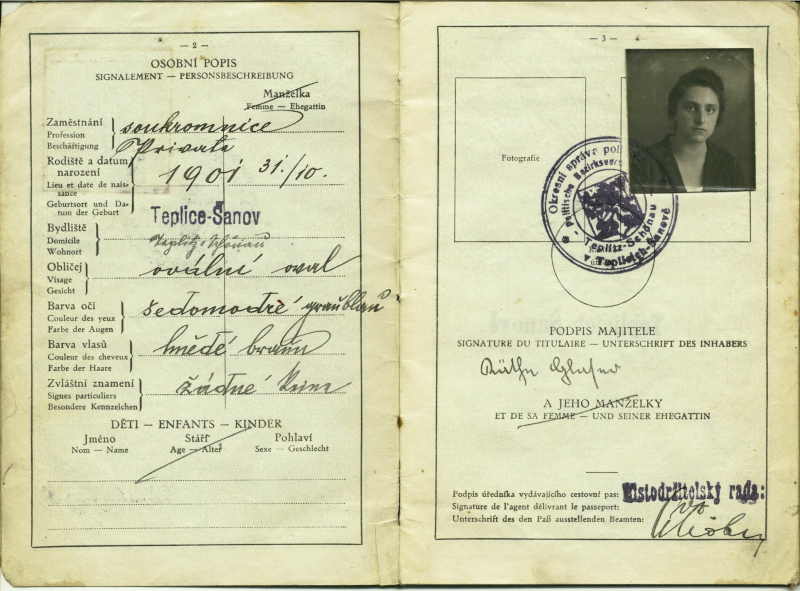 — 2 —
OSOBNÍ POPIS
SIGNALEMENT — PERSONSBESCHREIBUNG
Manželka
Femme — Ehegattin
Zaměstnání
Profession
Beschäftigung
soukromnice
Private
Rodiště a datum
narození
Lieu et date de nais-
sance
Geburtsort und Da-
tum der Geburt
1901 31./10.
Teplice-Šanov
Teplitz-Schönau
Bydliště
Domicile
Wohnort
Obličej
Visage
Gesicht
ovální oval
Barva očí
Couleur des yeux
Farbe der Augen
šedomodré graublau
Barva vlasů
Couleur des cheveux
Farbe der Haare
hnědé braun
Zvláštní znamení
Signes particuliers
Besondere Kennzeichen
žádné keine
DĚTI — ENFANTS — KINDER
Jméno Stáří Pohlaví
Nom — Name Age — Alter Sexe — Geschlecht
— 3 —
Fotografie
Okresní správa
Politische
Teplitz-Schönau
v Teplicích-Šanově
PODPIS MAJITELE
SIGNATURE DU TITULAIRE — UNTERSCHRIFT DES INHABERS
Glaser
A JEHO MANŽELKY
ET DE SA FEMME — UND SEINER EHEGATTIN
Podpis úředníka vydávajícího cestovní pas:
Místodržitelský rada:
Signature de l'agent délivrant le passeport:
Unterschrift des den Paß ausstellenden Beamten: